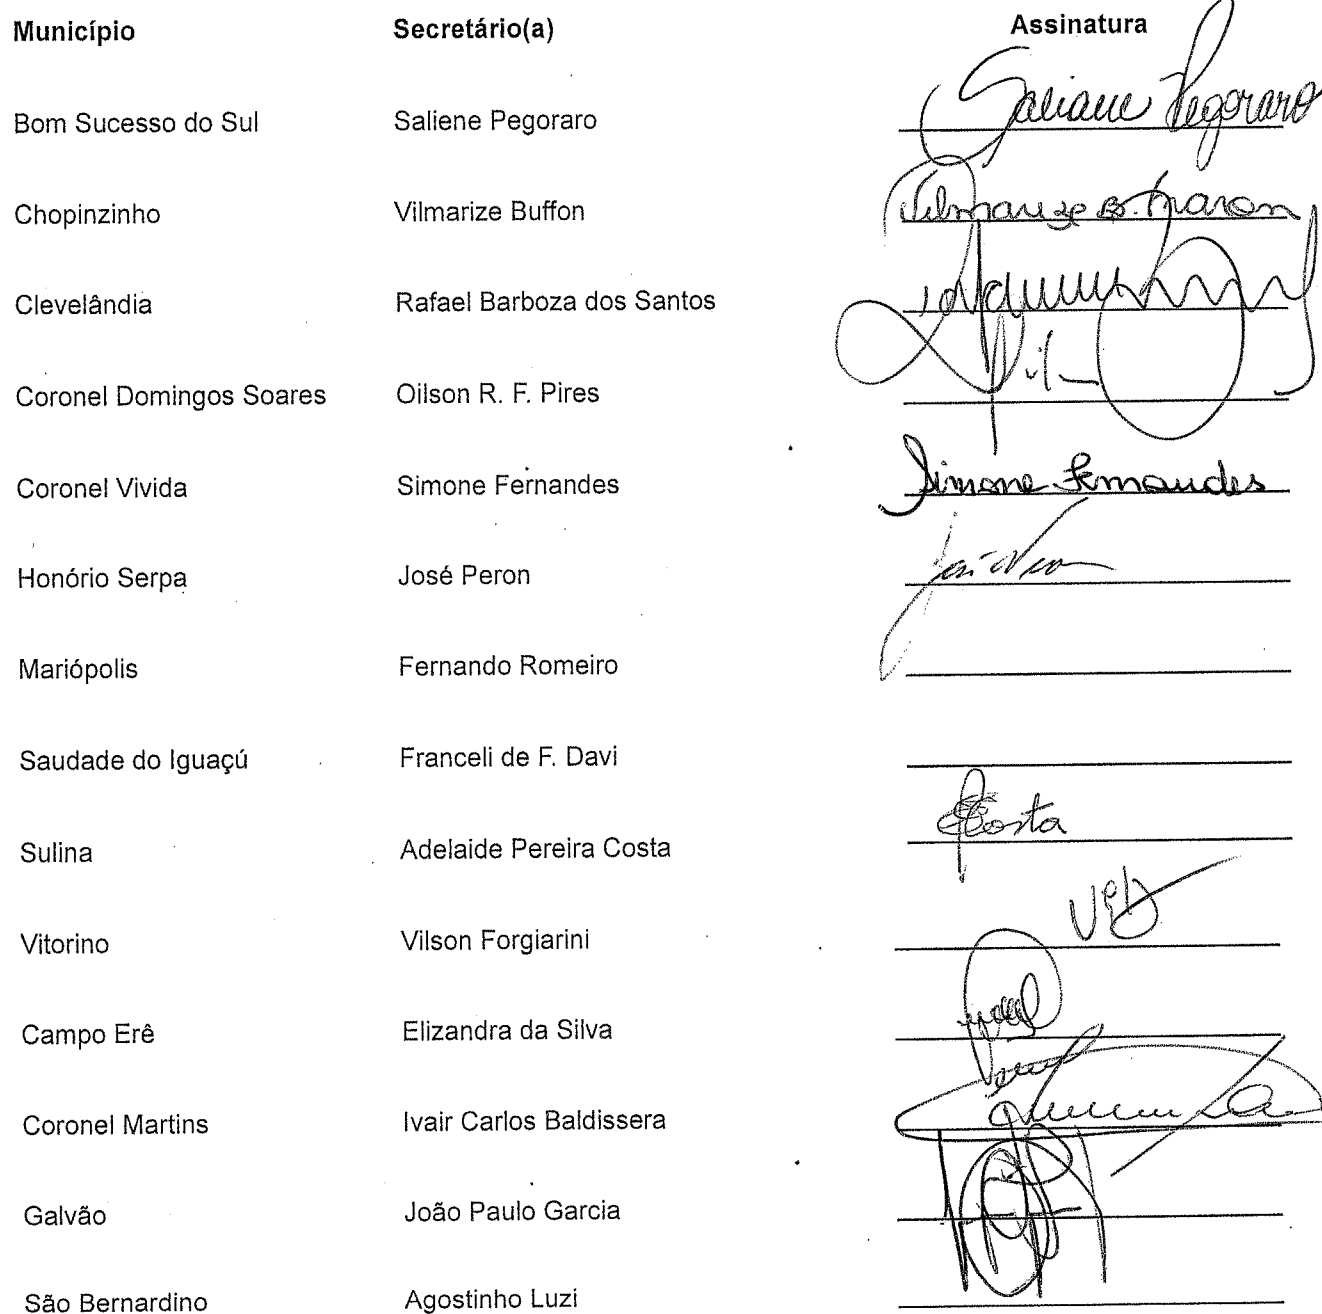 Município Secretário(a) Assinatura
Bom Sucesso do Sul Saliene Pegoraro Saliane Pegoraro
Chopinzinho Vilmarize Buffon Vilmarize B. Maron
Clevelândia Rafael Barboza dos Santos
Coronel Domingos Soares Oilson R. F. Pires
Coronel Vivida Simone Fernandes Simone Fernandes
Honório Serpa José Peron
Mariópolis Fernando Romeiro
Saudade do Iguaçú Franceli de F. Davi
Sulina Adelaide Pereira Costa Costa
Vitorino Vilson Forgiarini
Campo Erê Elizandra da Silva
Coronel Martins Ivair Carlos Baldissera
Galvão João Paulo Garcia
São Bernardino Agostinho Luzi